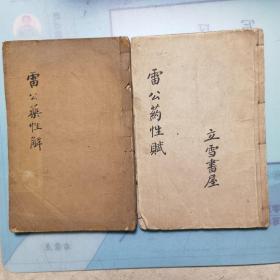 雷公藥性解
雷公药性賦
立雪書屋